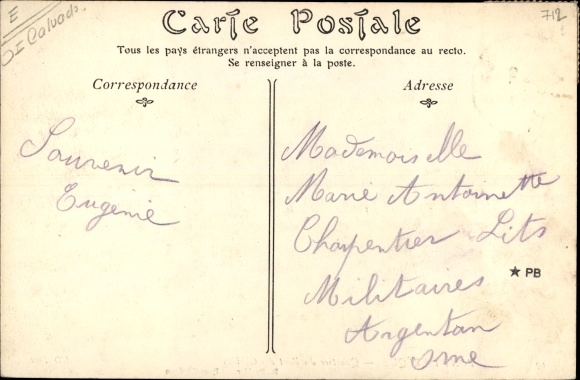 E
DI Calvados.
712
Carte Postale
Tous les pays étrangers n'acceptent pas la correspondance au recto.
Se renseigner à la poste.
Correspondance
Adresse
Souvenir
Eugénie
Mademoiselle
Marie Antoinette
Charpentier Lits
Militaires
Argentan
Orne
★ PB